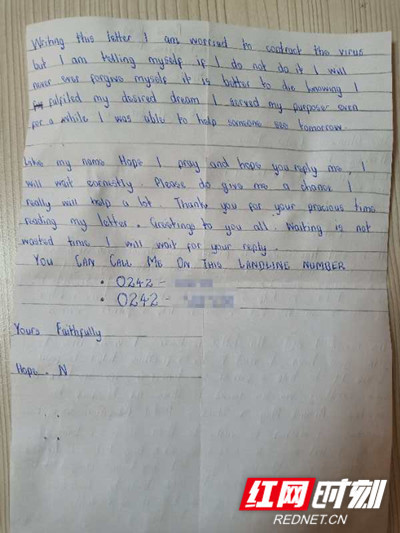 Writing this letter I am worried to contract the virus
but I am telling myself if I do not do it I will
never ever forgive myself it is better to die knowing I
fulfiled my desired dream I served my purpose even
for a while I was able to help someone see tomorrow
Like my name Hope I pray and hope you reply me, I
will wait earnestly. Please do give me a chance I
really will help a lot. Thank you for your precious time
reading my letter. Greetings to you all. Waiting is not
wasted time I will wait for your reply.
YOU CAN CALL ME ON THIS LANDLINE NUMBER
• 0242 -
• 0242 -
Yours Faithfully
Hope . N
红网时刻
REDNET.CN